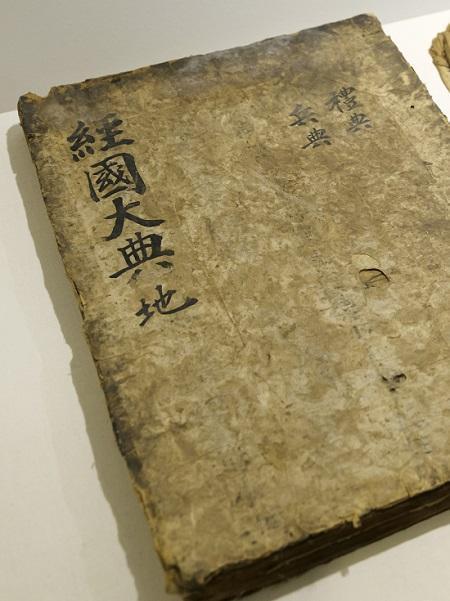 禮典
兵典
經國大典 地